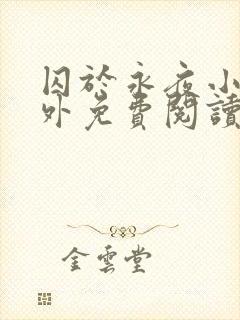 囚於永夜小
外免費閱讀
金雲堂